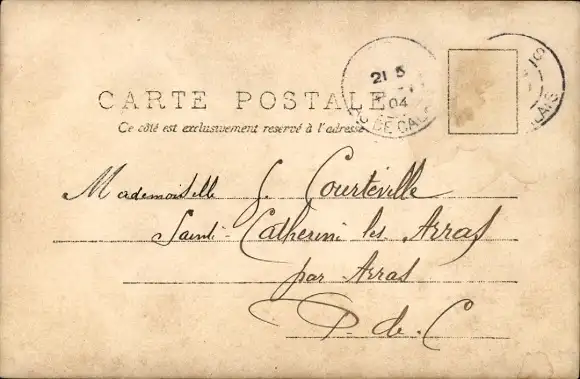 CARTE POSTALE
Ce côté est exclusivement reservé à l'adresse
21 5
04
DE CALAIS
Mademoiselle G. Courteville
Saint-Catherine les Arras
par Arras
P-de-C